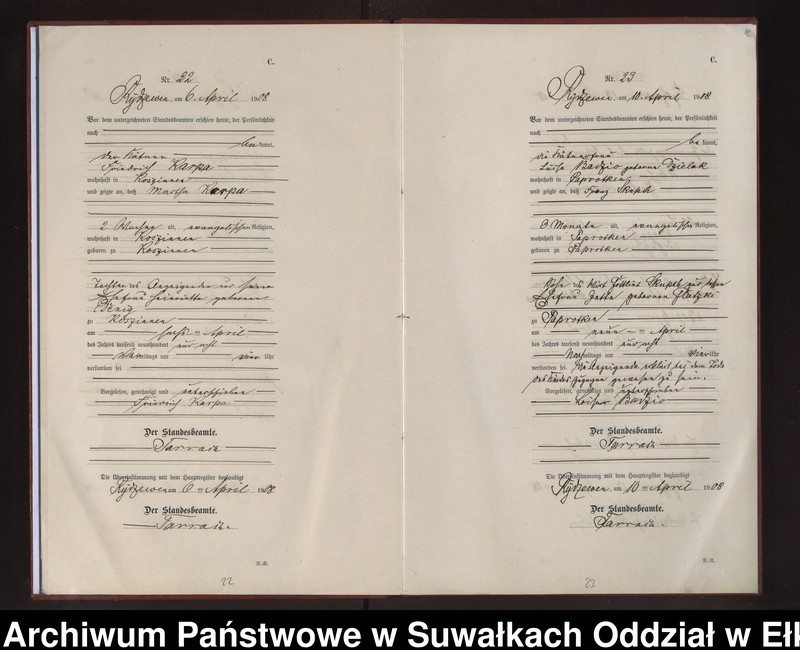 C.
Nr. 22
Rydzewen, am 6. April 1908.
Vor dem unterzeichneten Standesbeamten erschien heute, der Persönlichkeit
nach
be kannt,
der Kätner
Friedrich Karpa
wohnhaft in Koszinnen
und zeigte an, daß Martha Karpa
2 Wochen alt, evangelischer Religion,
wohnhaft in Koszinnen
geboren zu Koszinnen
Tochter des Anzeigenden und seiner
Ehefrau Henriette geborenen
zu Koszinnen
am sechs ten April
des Jahres tausend neunhundert und acht
Vor mittags um vier Uhr
verstorben sei.
Vorgelesen, genehmigt und unterschrieben
Friedrich Karpa
Der Standesbeamte.
Die Übereinstimmung mit dem Hauptregister beglaubigt
Rydzewen, am 6 ten April 1908.
Der Standesbeamte.
22
C.
Nr. 23
Rydzewen, am 10. April 1908.
Vor dem unterzeichneten Standesbeamten erschien heute, der Persönlichkeit
nach
be kannt,
die Kätnerfrau
Luise Badzio geborene Dzielak
wohnhaft in Paprotken
und zeigte an, daß Franz Skupch
Monate alt, evangelischer Religion,
wohnhaft in Paprotken
geboren zu Paprotken
Sohn des Wirt Gottlieb Skupch und seiner
Ehefrau geborenen
zu Paprotken
am neun ten April
des Jahres tausend neunhundert und acht
Nach mittags um vier Uhr
verstorben sei. Die Anzeigende erklärt bei dem Tode
des Kindes zugegen gewesen zu sein.
Vorgelesen, genehmigt und unterschrieben
Luise Badzio
Der Standesbeamte.
Die Übereinstimmung mit dem Hauptregister beglaubigt
Rydzewen, am 10 ten April 1908
Der Standesbeamte.
23
Archiwum Państwowe w Suwałkach Oddział w Ełk